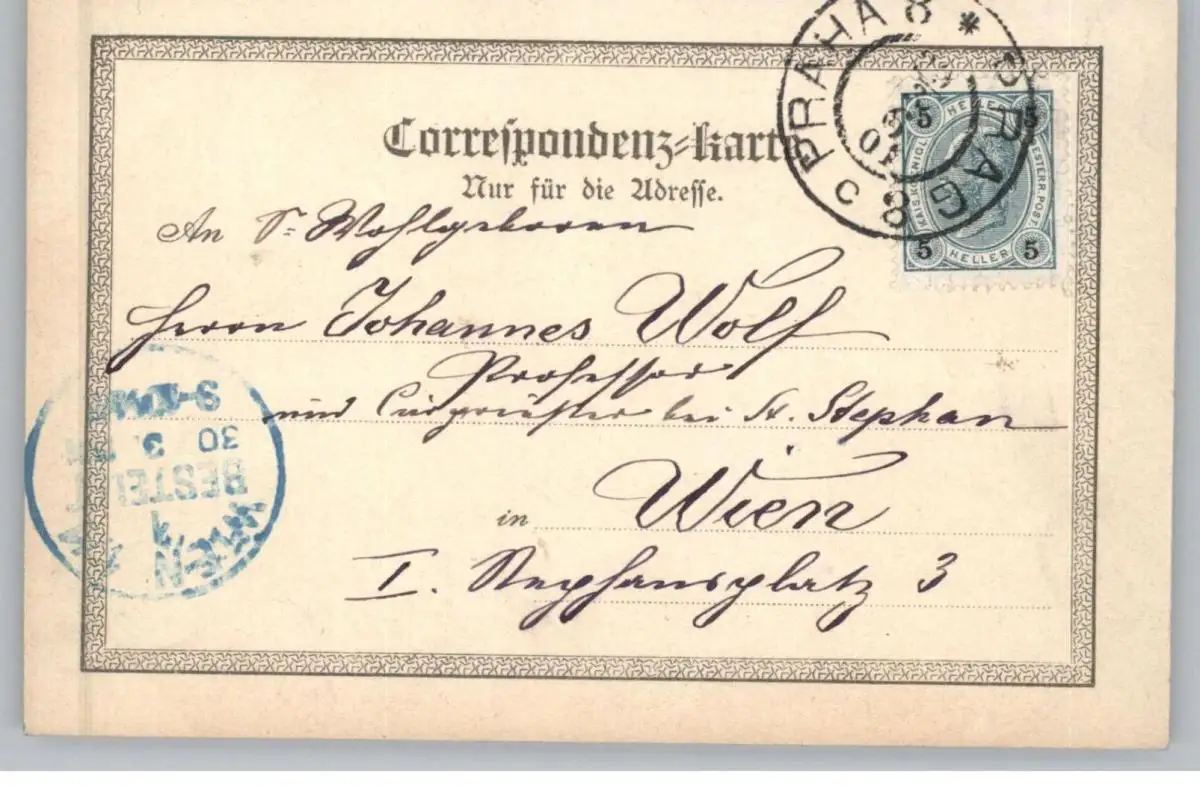 PRAHA 8 * PRAG 8 C
5 HELLER 5
KAIS. KÖNIGL. OESTERR. POST
5 HELLER 5
Correspondenz-Karte
Nur für die Adresse.
An Sr. Wohlgeboren
Herrn Johannes Wolf
Professor
und Curpriester bei St. Stephan
in Wien
I. Stephansplatz 3
WIEN 1
BESTELLT
30 3